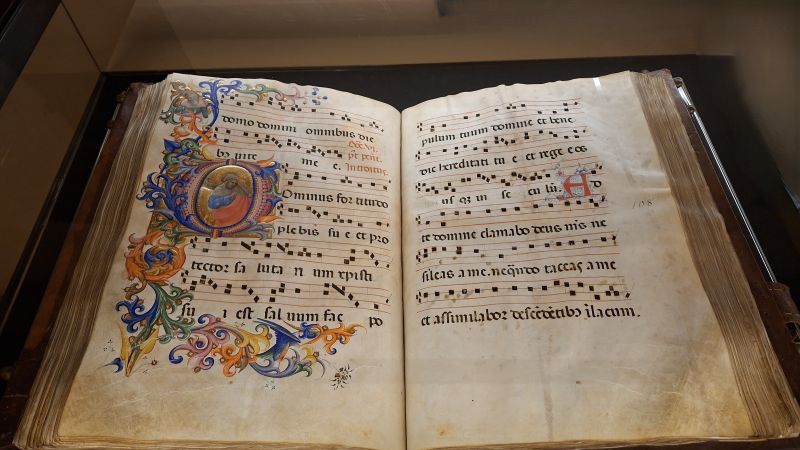 domo domini omnibus die
bɔ vite me e.
Dominus fortitudo
plebis su e et pro
tector sa luta ri um xpisti
su i est sal vum fac po
pulum tuum domine et bene
dic hereditati tu e et rege e os
us qz in se cu lū. Ad
te domine clamabo deus m̄s ne
sileas a me. neqn̄do taceas a me
et assimilabor descēdētibɔ ī lacum.
108